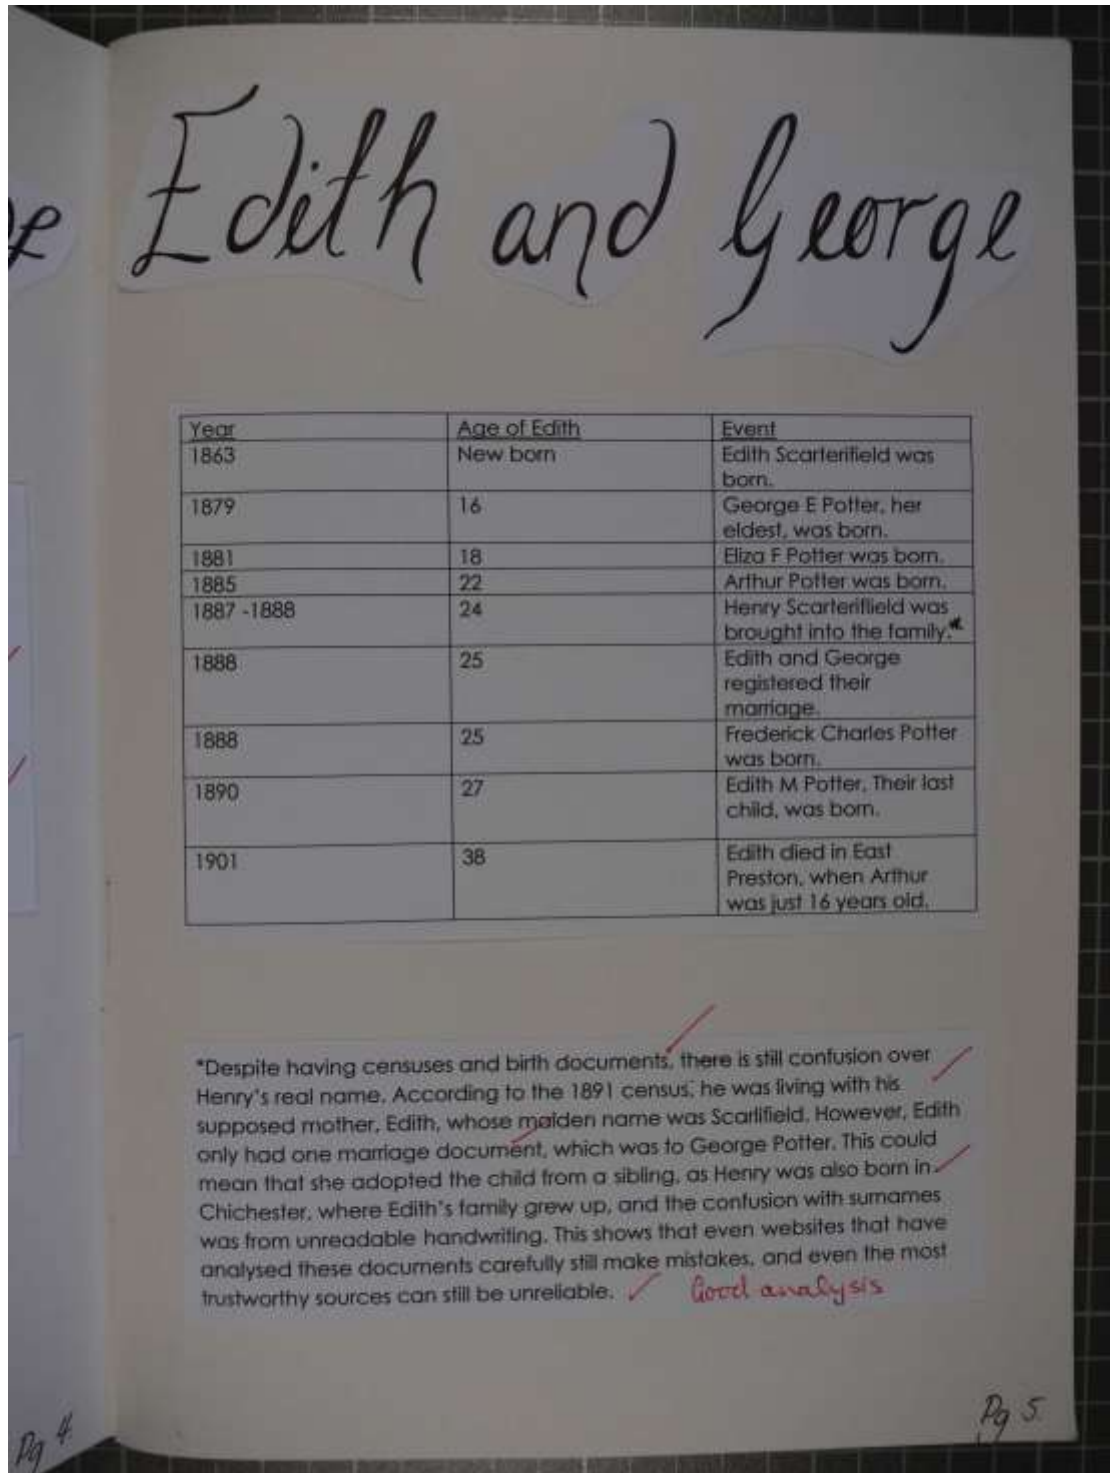 Edith and George
Year Age of Edith Event
1863 New born Edith Scarterifield was
born.
1879 16 George E Potter, her
eldest, was born.
1881 18 Eliza F Potter was born.
1885 22 Arthur Potter was born.
1887 -1888 24 Henry Scarteriflield was
brought into the family.*
1888 25 Edith and George
registered their
marriage.
1888 25 Frederick Charles Potter
was born.
1890 27 Edith M Potter, Their last
child, was born.
1901 38 Edith died in East
Preston, when Arthur
was just 16 years old.
*Despite having censuses and birth documents, there is still confusion over
Henry's real name. According to the 1891 census, he was living with his
supposed mother, Edith, whose maiden name was Scarlifield. However, Edith
only had one marriage document, which was to George Potter. This could
mean that she adopted the child from a sibling, as Henry was also born in
Chichester, where Edith's family grew up, and the confusion with surnames
was from unreadable handwriting. This shows that even websites that have
analysed these documents carefully still make mistakes, and even the most
trustworthy sources can still be unreliable. Good analysis
Pg 4.
Pg 5.